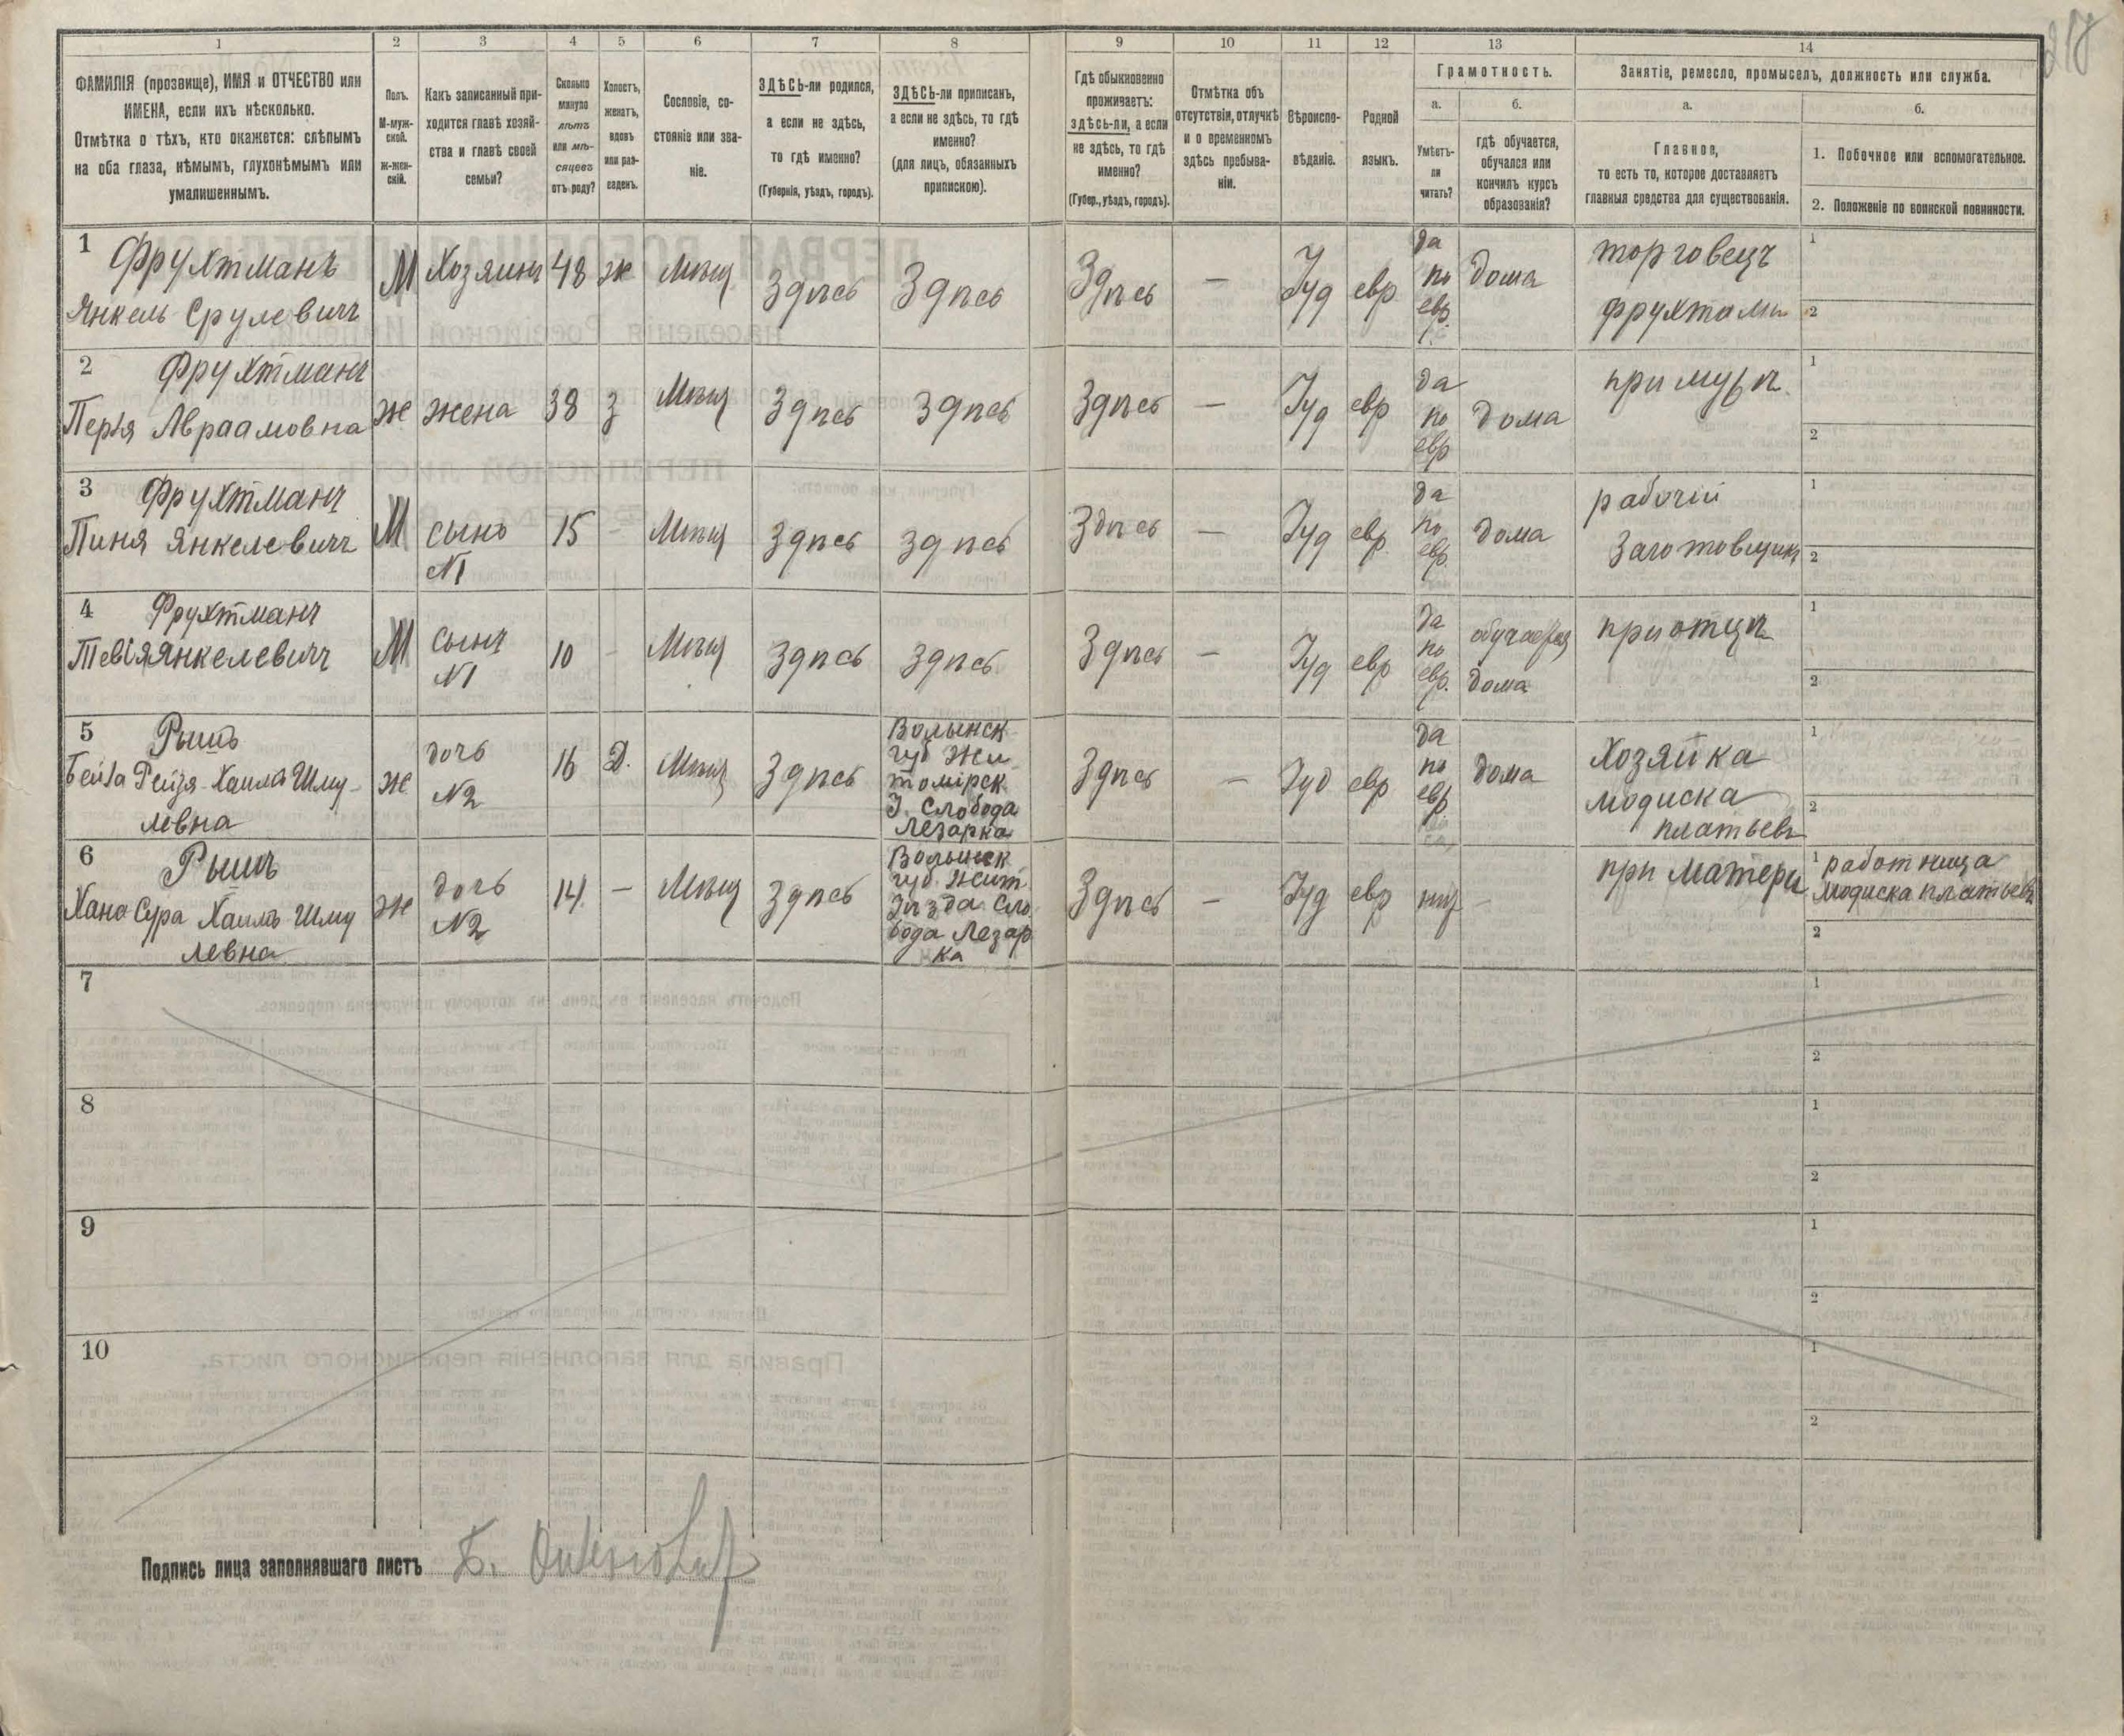 217
1 2 3 4 5 6 7 8 9 10 11 12 13 14
ФАМИЛІЯ (прозвище), ИМЯ и ОТЧЕСТВО или
ИМЕНА, если ихъ нѣсколько.
Отмѣтка о тѣхъ, кто окажется: слѣпымъ
на оба глаза, нѣмымъ, глухонѣмымъ или
умалишеннымъ.
Полъ.
М-муж-
ской.
Ж-жен-
скій.
Какъ записанный при-
ходится главѣ хозяй-
ства и главѣ своей
семьи?
Сколько
минуло
лѣтъ
или мѣ-
сяцевъ
отъ роду?
Холостъ,
женатъ,
вдовъ
или раз-
веденъ.
Сословіе, со-
стояніе или зва-
ніе.
ЗДѢСЬ-ли родился,
а если не здѣсь,
то гдѣ именно?
(Губернія, уѣздъ, городъ).
ЗДѢСЬ-ли приписанъ,
а если не здѣсь, то гдѣ
именно?
(для лицъ, обязанныхъ
припискою).
Гдѣ обыкновенно
проживаетъ:
здѣсь-ли, а если
не здѣсь, то гдѣ
именно?
(Губер., уѣздъ, городъ).
Отмѣтка объ
отсутствіи, отлучкѣ
и о временномъ
здѣсь пребыва-
ніи.
Вѣроиспо-
вѣданіе.
Родной
языкъ.
Грамотность.
а.
Умѣетъ-
ли
читать?
б.
гдѣ обучается,
обучался или
кончилъ курсъ
образованія?
Занятіе, ремесло, промыселъ, должность или служба.
а.
Главное,
то есть то, которое доставляетъ
главныя средства для существованія.
б.
1. Побочное или вспомогательное.
2. Положеніе по воинской повинности.
1 Фрухтманъ
Янкель Срулевичъ
М
Хозяинъ
48
ж
Мѣщ
Здѣсь
Здѣсь
Здѣсь
—
Іуд
евр
да
по
евр.
дома
торговецъ
фрухтами
1
2
2 Фрухтманъ
Перля Авраамовна
ж
жена
38
з
Мѣщ
Здѣсь
Здѣсь
Здѣсь
—
Іуд
евр
да
по
евр
дома
при мужѣ
1
2
3 Фрухтманъ
Пиня Янкелевичъ
М
сынъ
N1
15
-
Мѣщ
Здѣсь
Здѣсь
Здѣсь
—
Іуд
евр.
да
по
евр.
дома
рабочій
Заготовщикъ
1
2
4 Фрухтманъ
Тевія Янкелевичъ
М
сынъ
N1
10
-
Мѣщ
Здѣсь
Здѣсь
Здѣсь
—
Іуд
евр
да
по
евр.
обучается
дома
при отцѣ
1
2
5 Рышъ
Бейла Рейзя Хаима Шму-
левна
ж
дочь
N2
16
Д.
Мѣщ
Здѣсь
Волынск
губ Жи
томірск
У. Слобода
Лезарка
Здѣсь
—
Іуд
евр
да
по
евр.
дома
Хозяйка
модиска
платьевъ
1
2
6 Рышъ
Хана Сура Хаимъ Шму
левна
ж
дочь
N2
14
—
Мѣщ
Здѣсь
Волынск
губ. Жит
Уѣзда Сло
бода Лезар
ка
Здѣсь
—
Іуд
евр
нѣт
-
при матери
1 работница
модиска платьевъ
2
7
1
2
8
1
2
9
1
2
10
1
2
Подпись лица заполнявшаго листъ Б.